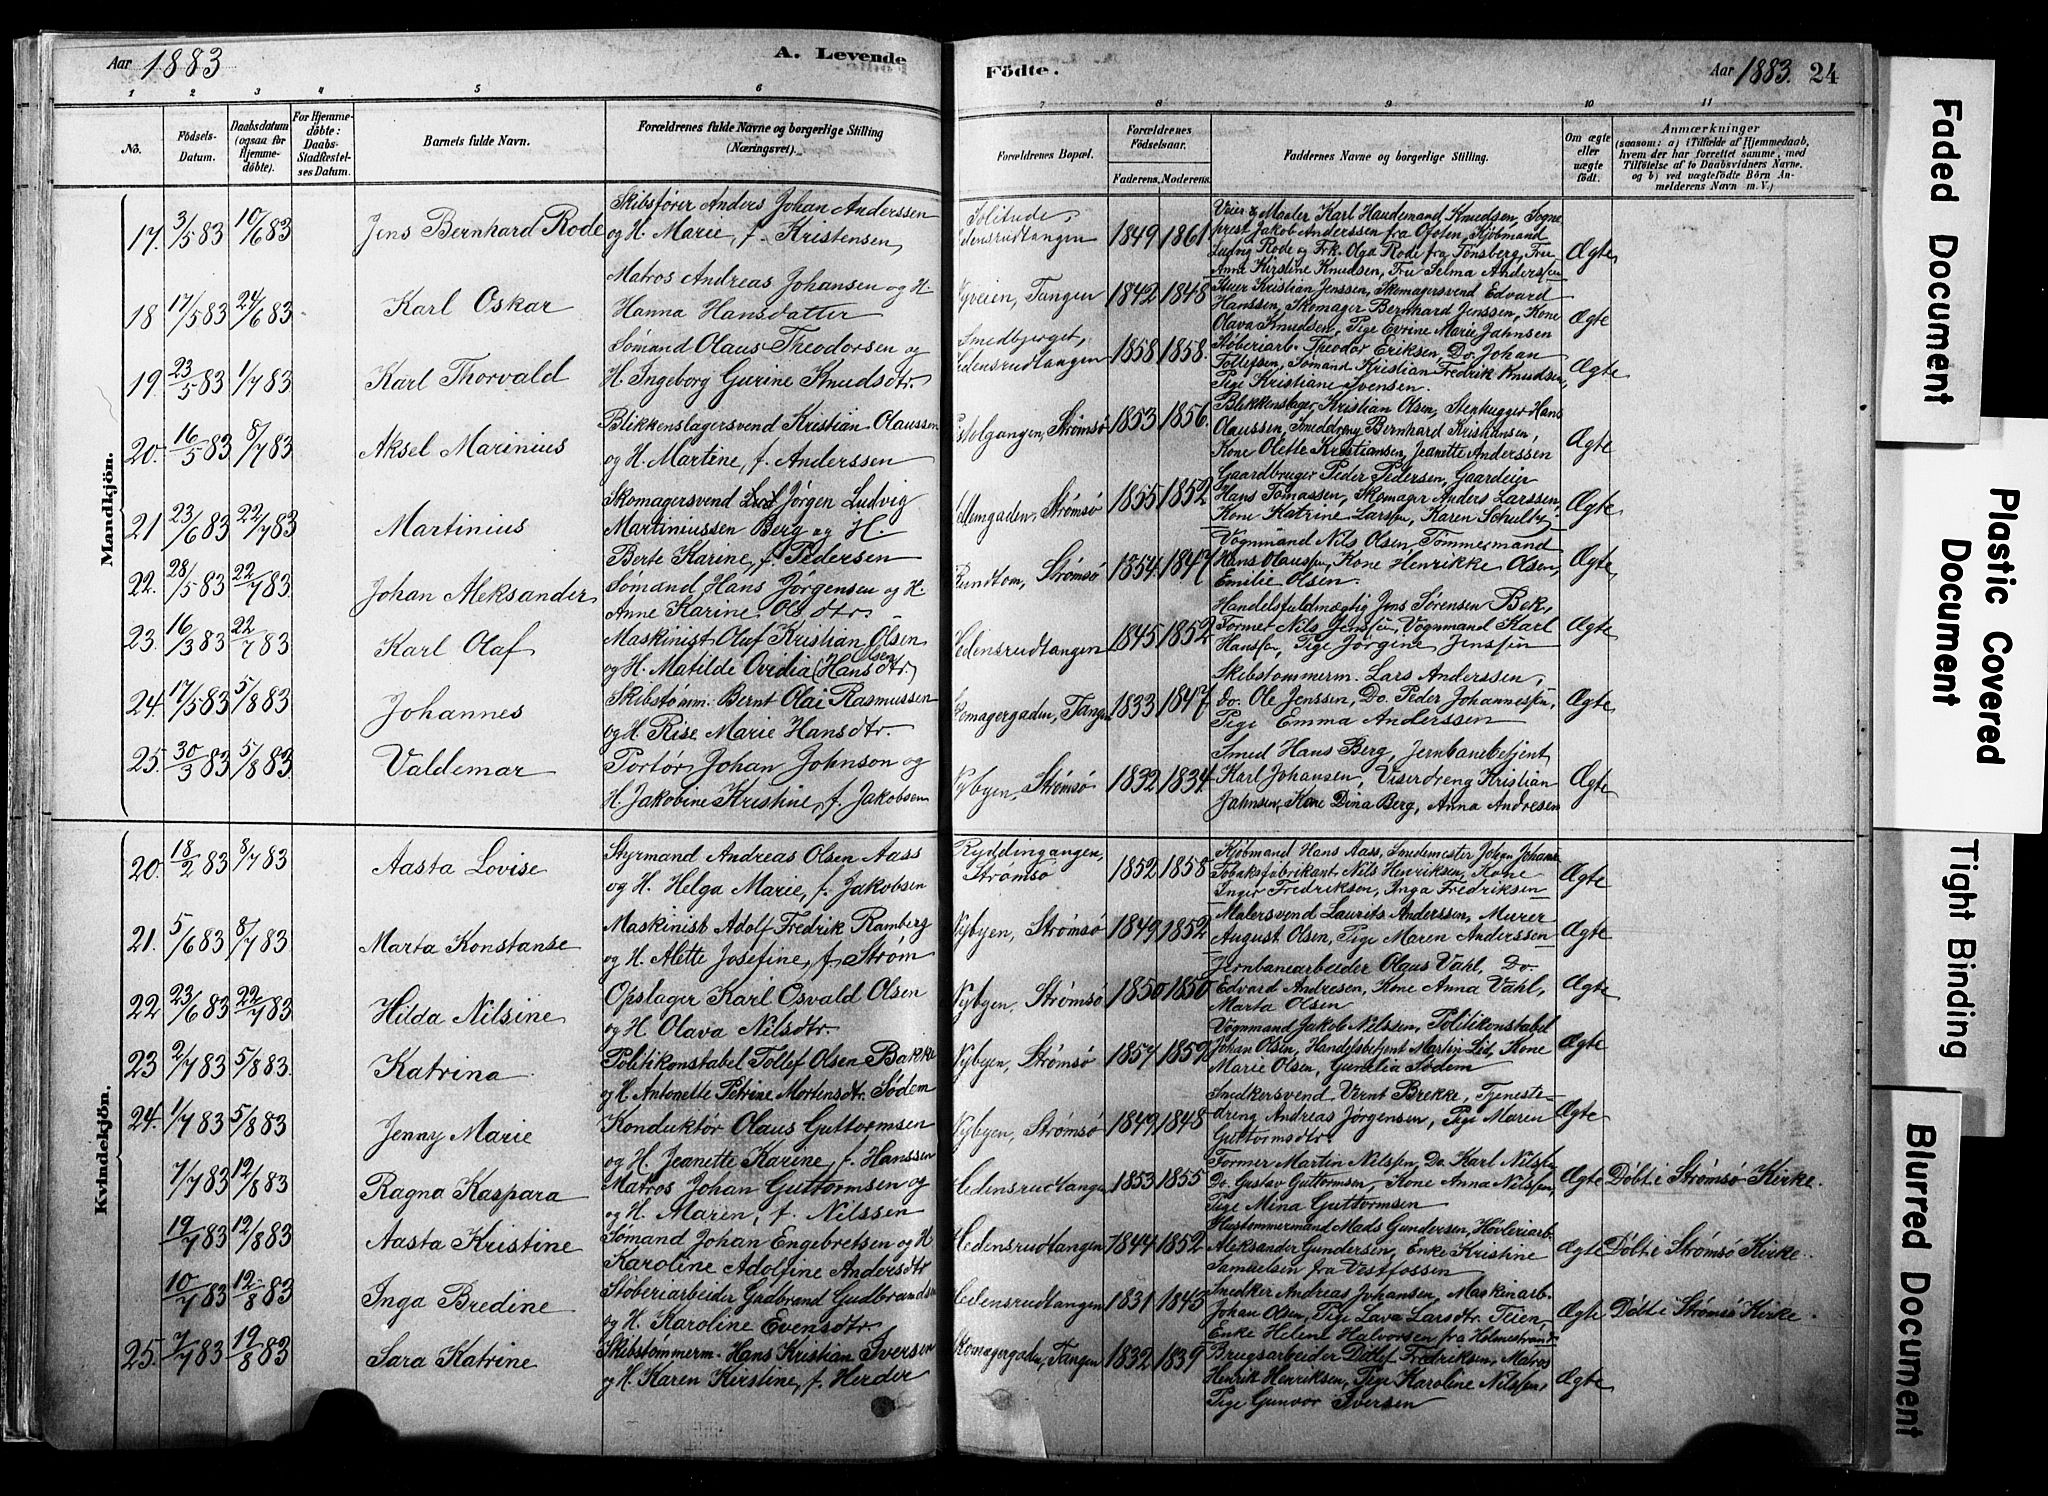 Aar 1883
A. Levende
Födte.
Aar 1883. 24
1 2 3 4 5 6 7 8 9 10 11
No.
Födsels-
Datum.
Daabsdatum
(ogsaa for
Hjemme-
döbte).
For Hjemme-
döbte:
Daabs-
Stadfæstel-
ses Datum.
Barnets fulde Navn.
Forældrenes fulde Navne og borgerlige Stilling
(Næringsvei).
Forældrenes Bopæl.
Forældrenes
Födselsaar.
Faderens. Moderens.
Faddernes Navne og borgerlige Stilling.
Om ægte
eller
uægte
födt.
Anmærkninger
(saasom: a) i Tilfælde af Hjemmedaab,
hvem der har forrettet samme, med
Tilföielse af to Daabsvidners Navne.
og b) ved uægtefödte Börn An-
melderens Navn m. V.)
Mandkjön.
17. 3/5 83 10/6 83 Jens Bernhard Rode
Skibsfører Anders Johan Anderssen
og H. Marie, f. Kristensen,
Solitude,
edensrudtangen 1849 1861
Veier & Maaler Karl Haudemand Knudsen, Sogne
prest Jakob Anderssen fra Ofoten, Kjøbmand
Ludvig Rode og Frk. Olga Rode fra Tønsberg, Fru
Anna Kirstine Knudsen, Fru Selma Anderssen
Ægte
18 17/5 83 24/6 83 Karl Oskar
Matros Andreas Johansen og H.
Hanna Hansdatter
yveien, Tangen 1842 1848
Stuer Kristian Jenssen, Skomagersvend Edvard
Hanssen, Skomager Bernhard Jenssen, Kone
Olava Knudsen, Pige Evrine Marie Jahnsen
Ægte
19. 23/5 83 1/7 83 Karl Thorvald
Sømand Olaus Theodorsen og
H. Ingeborg Gurine Knudsdtr.
Smedbjerget,
edensrudtangen 1858 1858.
Støberiarb. Theodor Eriksen, Do. Johan
Tollefsen, Sømand Kristian Fredrik Knudsen,
Pige Kristiane Svensen.
Ægte
20. 16/5 83 8/7 83 Aksel Marinius
Blikkenslagersvend Kristian Olaussen
og H. Martine, f. Anderssen
stolgangen, Strømsø 1853 1856.
Blikkenslager Kristian Olsen, Stenhugger Hans
Olaussen, Smeddreng Bernhard Kristiansen,
Kone Olette Kristiansen, Jeanette Anderssen
Ægte
21 23/6 83 22/7 83 Martinius
Skomagersvend Jørgen Ludvig
Martiniussen Berg og H.
Berte Karine, f. Pedersen
llemgaden, Strømsø 1855 1852
Gaardbruger Peder Pedersen, Gaardeier
Hans Tomassen, Skomager Anders Larssen,
Kone Katrine Larssen, Karen Schulby
Ægte
22. 28/5 83 22/7 83 Johan Aleksander
Sømand Hans Jørgensen og H.
Anne Karine Olsdtr.
Rundtom, Strømsø 1854 1847
Vognmand Nils Olsen, Tømmermand
Hans Olaussen, Kone Henrikke Olsen,
Emilie Olsen.
Ægte
23. 16/3 83 22/7 83 Karl Olaf
Maskinist Oluf Kristian Olsen
og H. Matilde Ovidia Olsen (Hansdtr.)
edensrudtangen 1845 1852
Handelsfuldmægtig Jens Sørensen Bek,
Former Nils Jenssen, Vognmand Karl
Hanssen, Pige Jørgine Jenssen
Ægte
24. 17/5 83 5/8 83 Johannes
Skibstømm. Bernt Olai Rasmussen
og H. Rise Marie Hansdtr.
komagergaden, Tangen 1833 1847
Skibstømmerm. Lars Anderssen,
Do. Ole Jenssen, Do. Peder Johannessen,
Pige Emma Anderssen
Ægte
25. 30/3 83 5/8 83 Valdemar
Portør Johan Johnson og
H. Jakobine Kristine, f. Jakobsen
Nybyen, Strømsø 1832 1834
Smed Hans Berg, Jernbanebetjent
Karl Johansen, Viserdreng Kristian
Jahnsen, Kone Dina Berg, Anna Andresen
Ægte
Kvindekjön.
20. 18/2 83 8/7 83 Aasta Lovise
Styrmand Andreas Olsen Aass
og H. Helga Marie, f. Jakobsen
Ryddingangen,
Strømsø 1852 1858
Kjøbmand Hans Aass, Smedemester Johan Johans
Tobaksfabrikant Nils Henriksen, Kone
Inger Fredriksen, Inga Fredriksen
Ægte
21. 5/6 83 8/7 83 Marta Konstanse
Maskinist Adolf Fredrik Ramberg
og H. Alette Josefine, f. Strøm
Nybyen, Strømsø 1849 1852
Malersvend Laurits Anderssen, Murer
August Olsen, Pige Maren Anderssen
Ægte
22 23/6 83 22/7 83 Hilda Nilsine
Opslager Karl Osvald Olsen
og H Olava Nilsdtr.
Nybyen, Strømsø 1850 1850
Jernbanearbeider Olaus Vahl, Do.
Edvard Andresen, Kone Anna Vahl,
Marta Olsen
Ægte
23 2/7 83 5/8 83. Katrina
Politikonstabel Tollef Olsen Bakke
og H. Antonette Petrine Mortensdtr. Sødem
Nybyen, Strømsø 1854 1852
Vognmand Jakob Nilssen, Politikonstabel
Johan Olsen, Handelsbetjent Martin Lid, Kone
Marie Olsen, Gunelia Sødem
Ægte
24. 1/7 83 5/8 83 Jenny Marie
Konduktør Olaus Guttormsen
og H. Jeanette Karine, f. Hanssen
Nybyen, Strømsø 1849 1848
Snedkersvend Vernt Brekke, Tjeneste-
dreng Andreas Jørgensen, Pige Maren
Guttormsdtr.
Ægte
7/7 83 12/8 83 Ragna Kaspara
Matros Johan Guttormsen og
og H. Maren, f. Nilssen
Hedensrudtangen 1853 1855
Former Martin Nilssen, Do. Karl Nilssen
Do. Gustav Guttormsen, Kone Anna Nilssen,
Pige Mina Guttormsen
Ægte Døbt i Strømsø Kirke.
19/7 83 12/8 83 Aasta Kristine
Sømand Johan Engebretsen og H
Karoline Adolfine Andersdtr
Hedensrudtangen 1844 1852
Hustømmermand Mads Gundersen, Høvleriarb.
Aleksander Gundersen, Enke Kristine
Samuelsen fra Vestfossen
Ægte Døbt i Strømsø Kirke.
10/7 83 12/8 83 Inga Bredine
Støberiarbeider Gudbrand Gudbrands
og H. Karoline Evensdtr
Hedensrudtangen 1831 1843
Snedker Andreas Johansen, Maskinarb.
Johan Olsen, Pige Lava Larsdtr. Teien,
Enke Helene Halvorsen fra Holmestrand
Ægte Døbt i Strømsø Kirke.
25. 7/7 83 19/8 83 Sara Katrine
Skibstømmerm. Hans Kristian Iversen
og H. Karen Kirstine, f. Herder
komagergaden, Tangen 1832 1839
Brugsarbeider Ditlef Fredriksen, Matros
Henrik Henriksen, Pige Karoline Nilssen,
Pige Gunvor Iversen
Ægte
Faded Document
Plastic Covered
Document
Tight Binding
Blurred Document